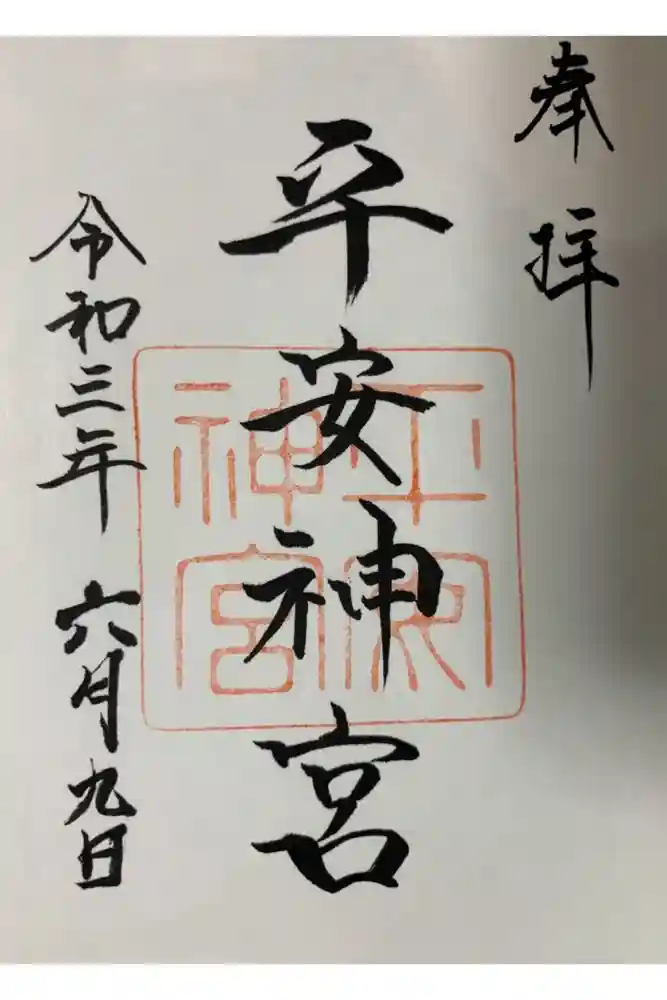 奉拝
平安神宮
平安神宮
令和三年六月九日